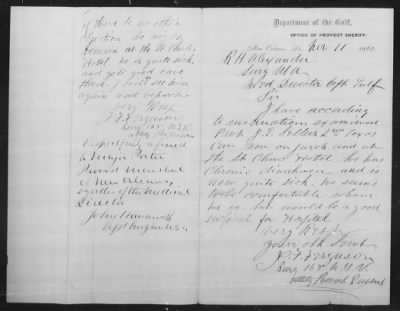 Department of the Gulf,
OFFICE OF PROVOST SHERIFF,
New Orleans, La. Nov 11 186
R H Alexander
Surg U.S.A
Med Director Dept Gulf
Sir
I have according
to instruction examined
J. E. 2nd Texas
Cav on parole and at
the St Charles Hotel he has
Chronic diarrhoea and is
now quite sick. He seems
to be comfortable where
he is. but would be a good
subject for Hospital
Very Resp
Your obt Servt
J. F. Ferguson
Surg 165 N.Y.V.
if there is no other
he may
remain at the St Charles
Hotel he is quite sick
and gets good care
there. I will see him
again and report
Very Resp
J F Ferguson
Surg 165 N.Y.V.
Respectfully referred
to Major Porter
Provost Marshal
of New Orleans,
by order of the Medical
Director
John
Asst Surgeon U.S.A